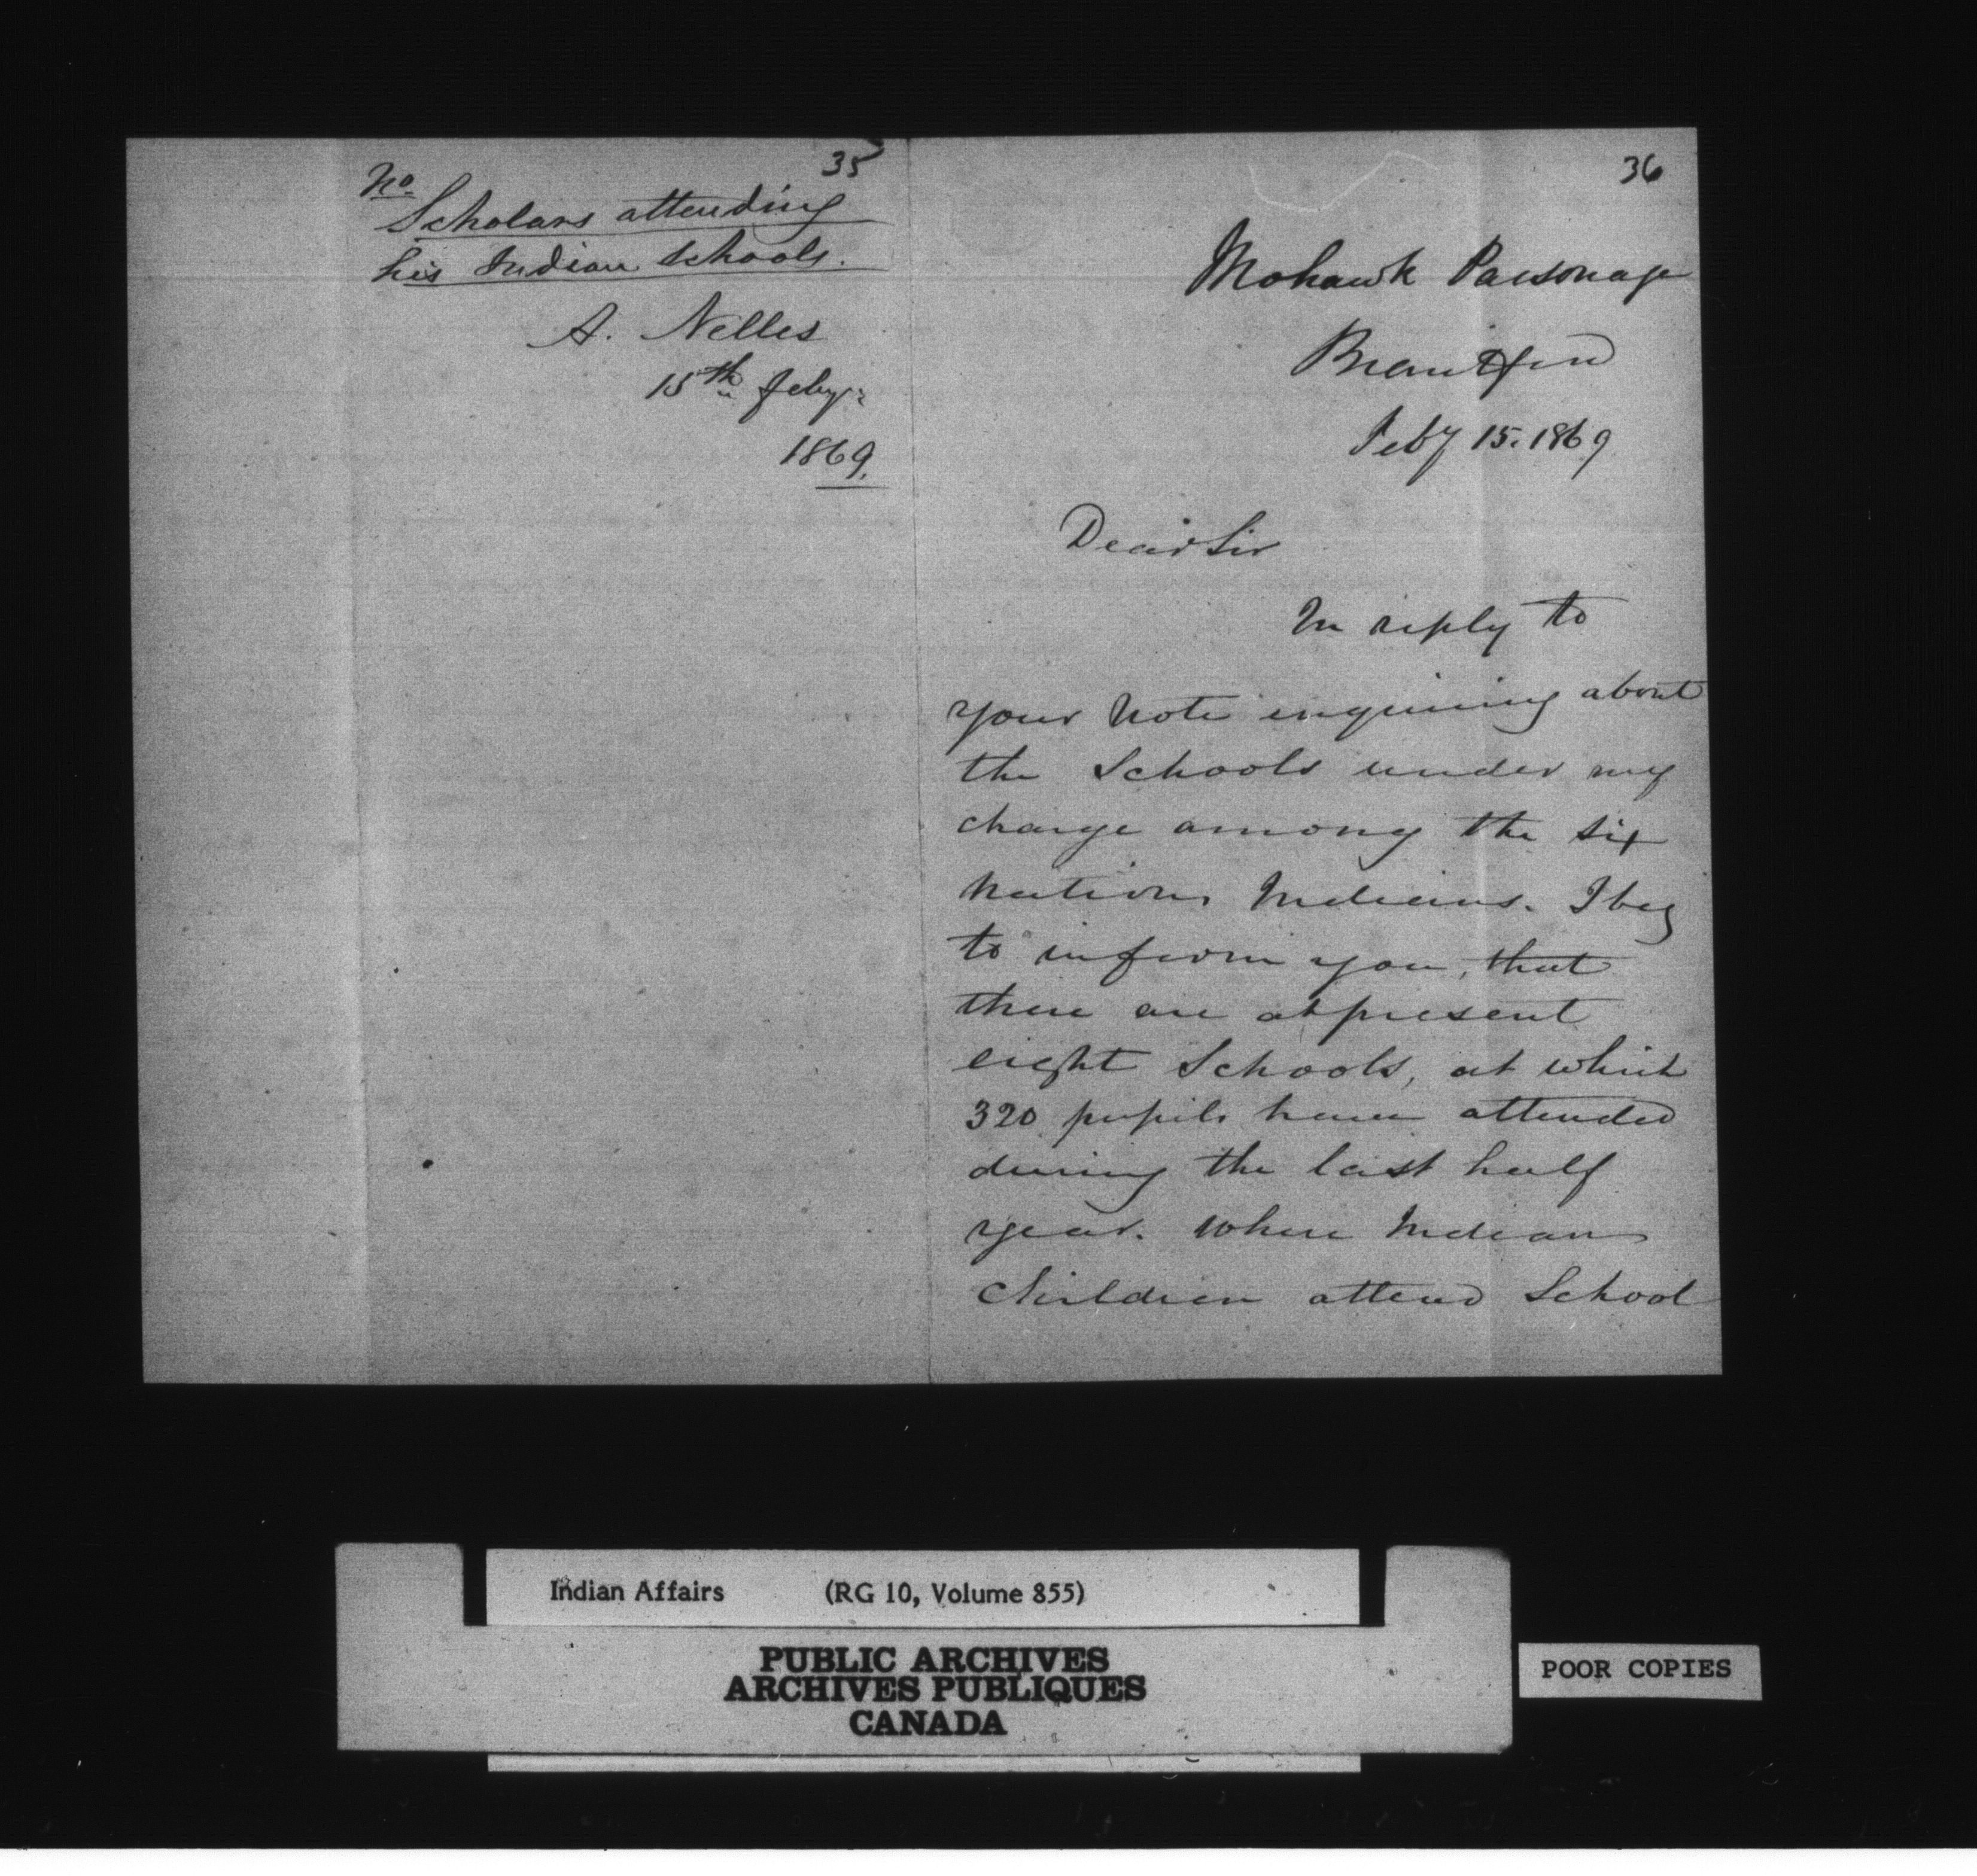 35
No.
Scholars attending
his Indian Schools.
A. Nelles
15th Feby.
1869.
36
Mohawk Parsonage
Brantford
Feby 15. 1869
Dear Sir
In reply to
your note inquiring about
the Schools under my
charge among the Six
Nations Indians. I beg
to inform you, that
there are at present
eight Schools, at which
320 pupils have attended
during the last half
year. Where Indian
Children attend School
Indian Affairs (RG 10, Volume 855)
PUBLIC ARCHIVES
ARCHIVES PUBLIQUES
CANADA
POOR COPIES